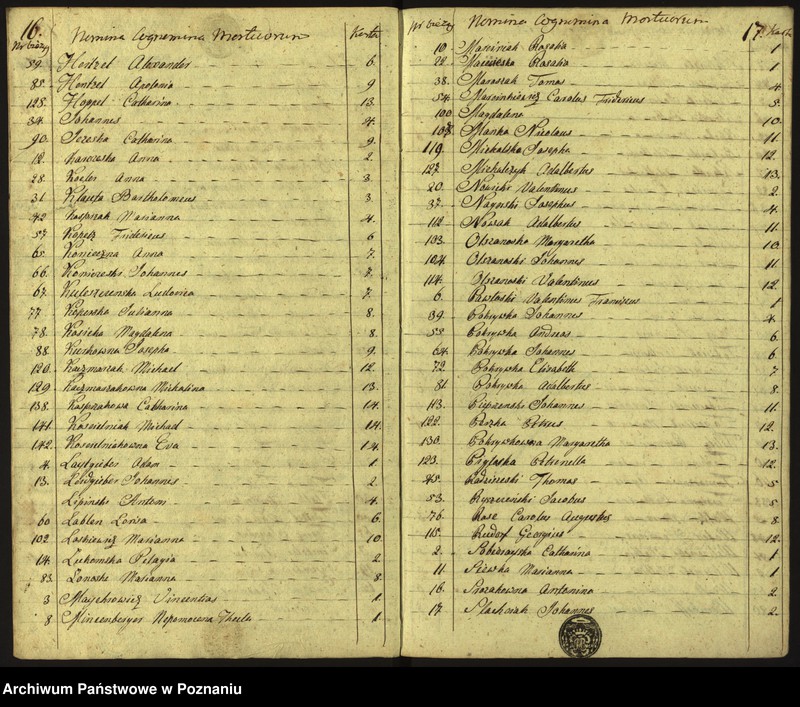 16.
Nomina Cognomina Mortuorum
Nr bieżą Karta
59. Hentzel Alexander 6.
85. Hentzel Apolonia 9
125. Hoppel Catharina 13.
34. Johannes 4.
90. Jezoska Catharina 9.
12. Karczeska Anna 2.
28. Koeler Anna 3.
31 Klauza Bartholomeus 3.
42 Kasprzak Marianna 4.
57 Kopetz Fridericus 6
65 Konieczna Anna 7.
66. Konieczesko Johannes 7.
67. Kuleszezenska Ludovica 7.
77 Kopeczka Julianna 8.
78. Kosicka Magdalena 8.
88. Kuchowna Josepha 9.
120. Kaczmarzak Michael 12.
129 Kaczmarzakowna Michalina 13.
138. Kasprzakowa Catharina 14.
141. Koscielniak Michael 14.
142. Koscielniakowna Eva 14.
4. Laydgieber Adam 1.
13. Leydgieber Johannes 2.
Lipinski Antoni 4.
60 Lablen Lovisa 6.
102. Laskiewicz Marianna 10.
14. Lukomska Pelagia 2.
83. Lonaske Marianna 8.
3 Maychrowicz Vincentius 1.
8 Mincenberger Nepomocena Thecla 1.
Nr bieżą Nomina Cognomina Mortuorum 17. Karta
10. Marciniak Rosalia 1
22. Maciieska Rosalia 1
38. Maraszak Tomas 4
54. Marcinkiewicz Carolus Fridericus 5.
100 Magdalena 10.
108. Manka Nicolaus 11.
119. Michalska Josepha 12.
127. Michalczyk Adalbertus 13.
20. Nowicki Valentinus 2.
37. Nagorski Josephus 4.
112. Nowak Adalbertus 11.
103. Olszanoska Margaretha 10.
104. Olszanoski Johannes 11.
114. Olszanoski Valentinus 12.
6. Pawloski Valentinus Franciscus 1
39. Pokrywka Johannes 4.
55. Pokrywka Andreas 6.
64. Pokrywka Johannes 6
72. Pokrywka Elizabeth 7
81 Pokrywka Adalbertus 8.
113. Pieprzenski Johannes 11.
122. Peszka Petrus 12.
130. Pokrywkowna Margaretha 13.
123. Przylaska Petronella 12.
45. Radzineski Thomas 5
53. Ryszczenski Jacobus 5
76. Rose Carolus Augustus 8
115. Rudolf Georgius 12.
2. Sobierayska Catharina 1
11. Siewka Marianna 1
16. Srozakowna Antonina 2.
17. Stachowiak Johannes 2.
Archiwum Państwowe w Poznaniu